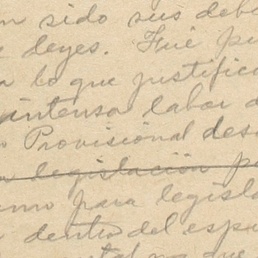 sido sus deb
leyes. Fué pu
lo que justific
intensa labor d
Provisional des
legislación p
para legisla
dentro del esp
que